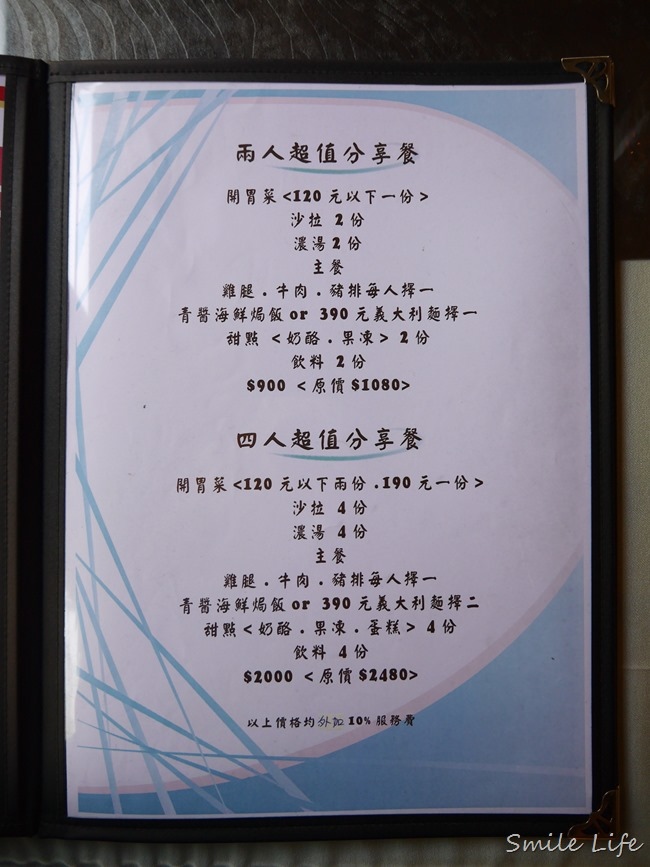 兩人超值分享餐
開胃菜<120 元以下一份>
沙拉 2份
濃湯 2份
主餐
雞腿.牛肉.豬排每人擇一
青醬海鮮焗飯 or 390 元義大利麵擇一
甜點 <奶酪.果凍> 2份
飲料 2份
$900 <原價 $1080>
四人超值分享餐
開胃菜<120 元以下兩份.190 元一份>
沙拉 4份
濃湯 4份
主餐
雞腿.牛肉.豬排每人擇一
青醬海鮮焗飯 or 390 元義大利麵擇二
甜點<奶酪.果凍.蛋糕> 4份
飲料 4份
$2000 <原價 $2480>
以上價格均外加 10% 服務費
Smile Life